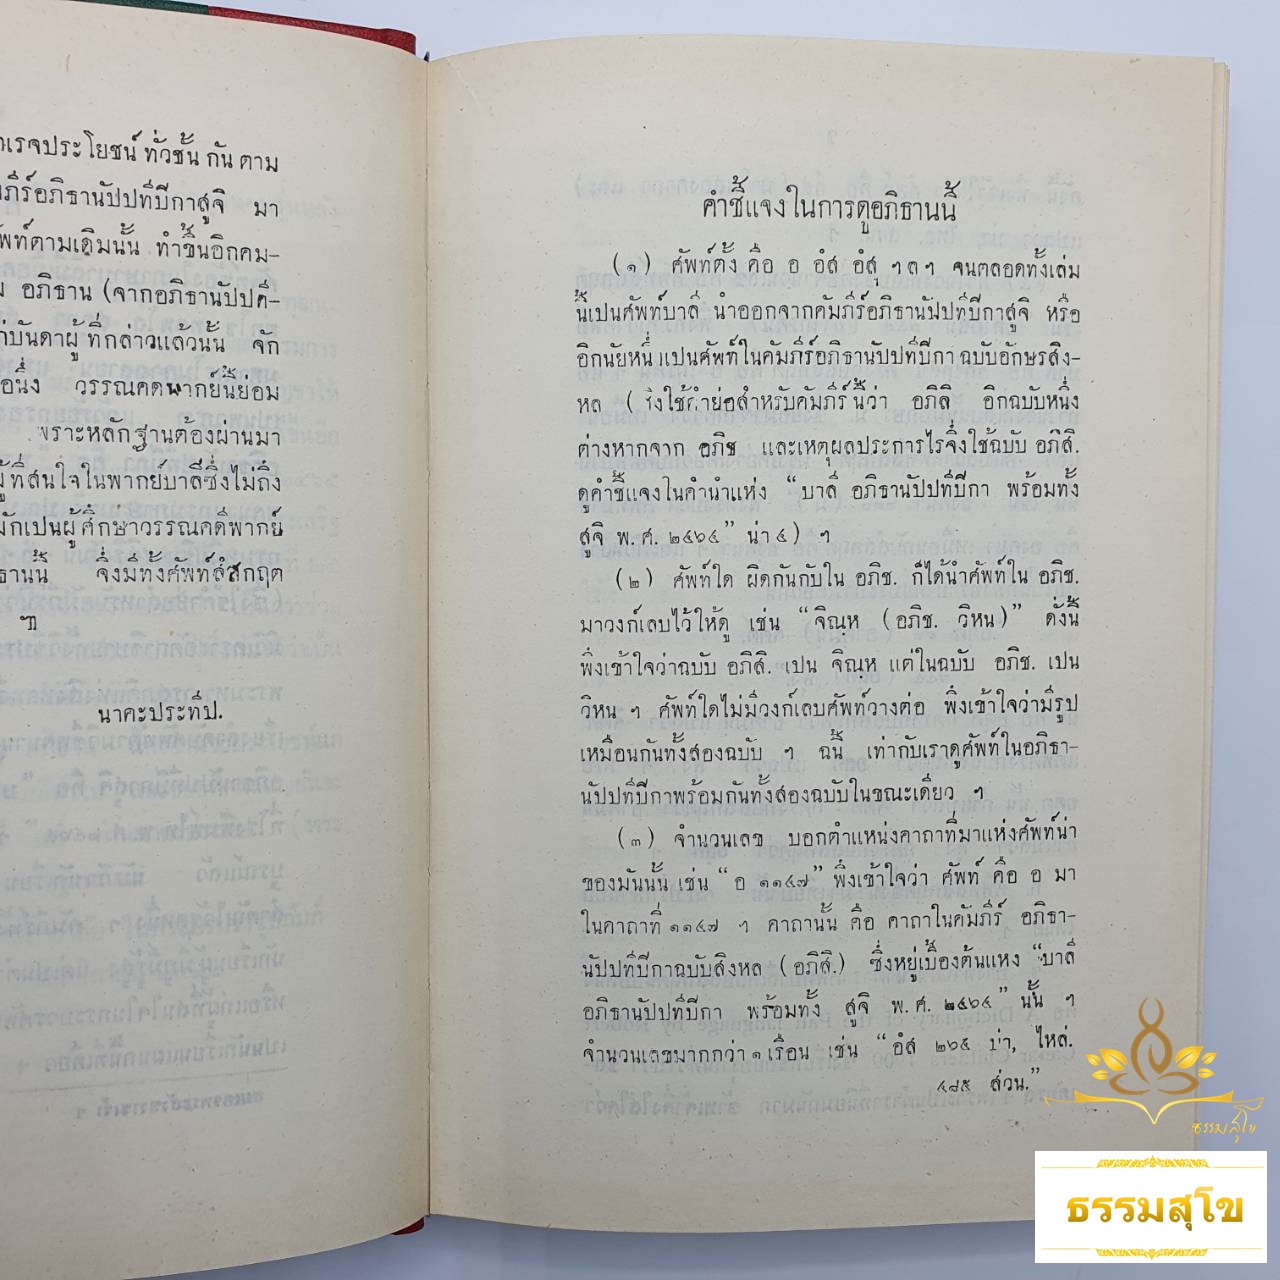 เรจประโยชน์ ทั่วชั้น กัน ตาม
ภีร์อภิธานัปปทีปีกาสูจิ มา
พท์ตามเดิมนั้น ทำขึ้นอีกคม–
อภิธาน (จากอภิธานัปปที–
บันดาผู้ ที่กล่าวแล้วนั้น จัก
อนึ่ง วรรณคดีพากย์นี้ย่อม
พราะหลักฐานต้องผ่านมา
ผู้ที่สนใจในพากย์บาลีซึ่งไม่ถึง
มักเปนผู้ศึกษาวรรณคดีพากย์
ธานนี้ จึ่งมีทั้งศัพท์สํสกฤต
ฯ
นาคะประทีป.
คำชี้แจงในการดูอภิธานนี้
(๑) ศัพท์ตั้ง คือ อ อํส อํสุ ฯลฯ จนตลอดทั้งเล่ม
นี้เปนศัพท์บาลี นำออกจากคัมภีร์อภิธานัปปทีปีกาสูจิ หรือ
อีกนัยหนึ่งเปนศัพท์ในคัมภีร์อภิธานัปปทีปีกา ฉบับอักษรสิง–
หล (ซึ่งใช้คำย่อสำหรับคัมภีร์นี้ว่า อภิสิ อีกฉบับหนึ่ง
ต่างหากจาก อภิช. และเหตุผลประการไรจึ่งใช้ฉบับ อภิสิ.
ดูคำชี้แจงในคำนำแห่ง “บาลี อภิธานัปปทีปีกา พร้อมทั้ง
สูจิ พ.ศ. ๒๔๖๔” น่า ๔) ฯ
(๒) ศัพท์ใด ผิดกันกับใน อภิช. ก็ได้นำศัพท์ใน อภิช.
มาวงก์เลบไว้ให้ดู เช่น “จิณฺห (อภิช. วิหน)” ดั่งนี้
พึงเข้าใจว่าฉบับ อภิสิ. เปน จิณฺห แต่ในฉบับ อภิช. เปน
วิหน ฯ ศัพท์ใดไม่มีวงก์เลบศัพท์วางต่อ พึงเข้าใจว่ามีรูป
เหมือนกันทั้งสองฉบับ ฯ ฉนี้ เท่ากับเราดูศัพท์ในอภิธา–
นัปปทีปีกาพร้อมกันทั้งสองฉบับในขณะเดียว ฯ
(๓) จำนวนเลข บอกตำแหน่งคาถาที่มาแห่งศัพท์น่า
ของมันนั้น เช่น “อ ๑๑๔๗” พึงเข้าใจว่า ศัพท์ คือ อ มา
ในคาถาที่ ๑๑๔๗ ฯ คาถานั้น คือ คาถาในคัมภีร์ อภิธา–
นัปปทีปีกาฉบับสิงหล (อภิสิ.) ซึ่งหยู่เบื้องต้นแห่ง “บาลี
อภิธานัปปทีปีกา พร้อมทั้ง สูจิ พ.ศ. ๒๔๖๔” นั้น ฯ
จำนวนเลขมากกว่า ๑ เรือน เช่น “อํส ๒๖๔ บ่า, ไหล่.
๔๘๕ ส่วน.”
ธรรมสุโข
ธรรมสุโข